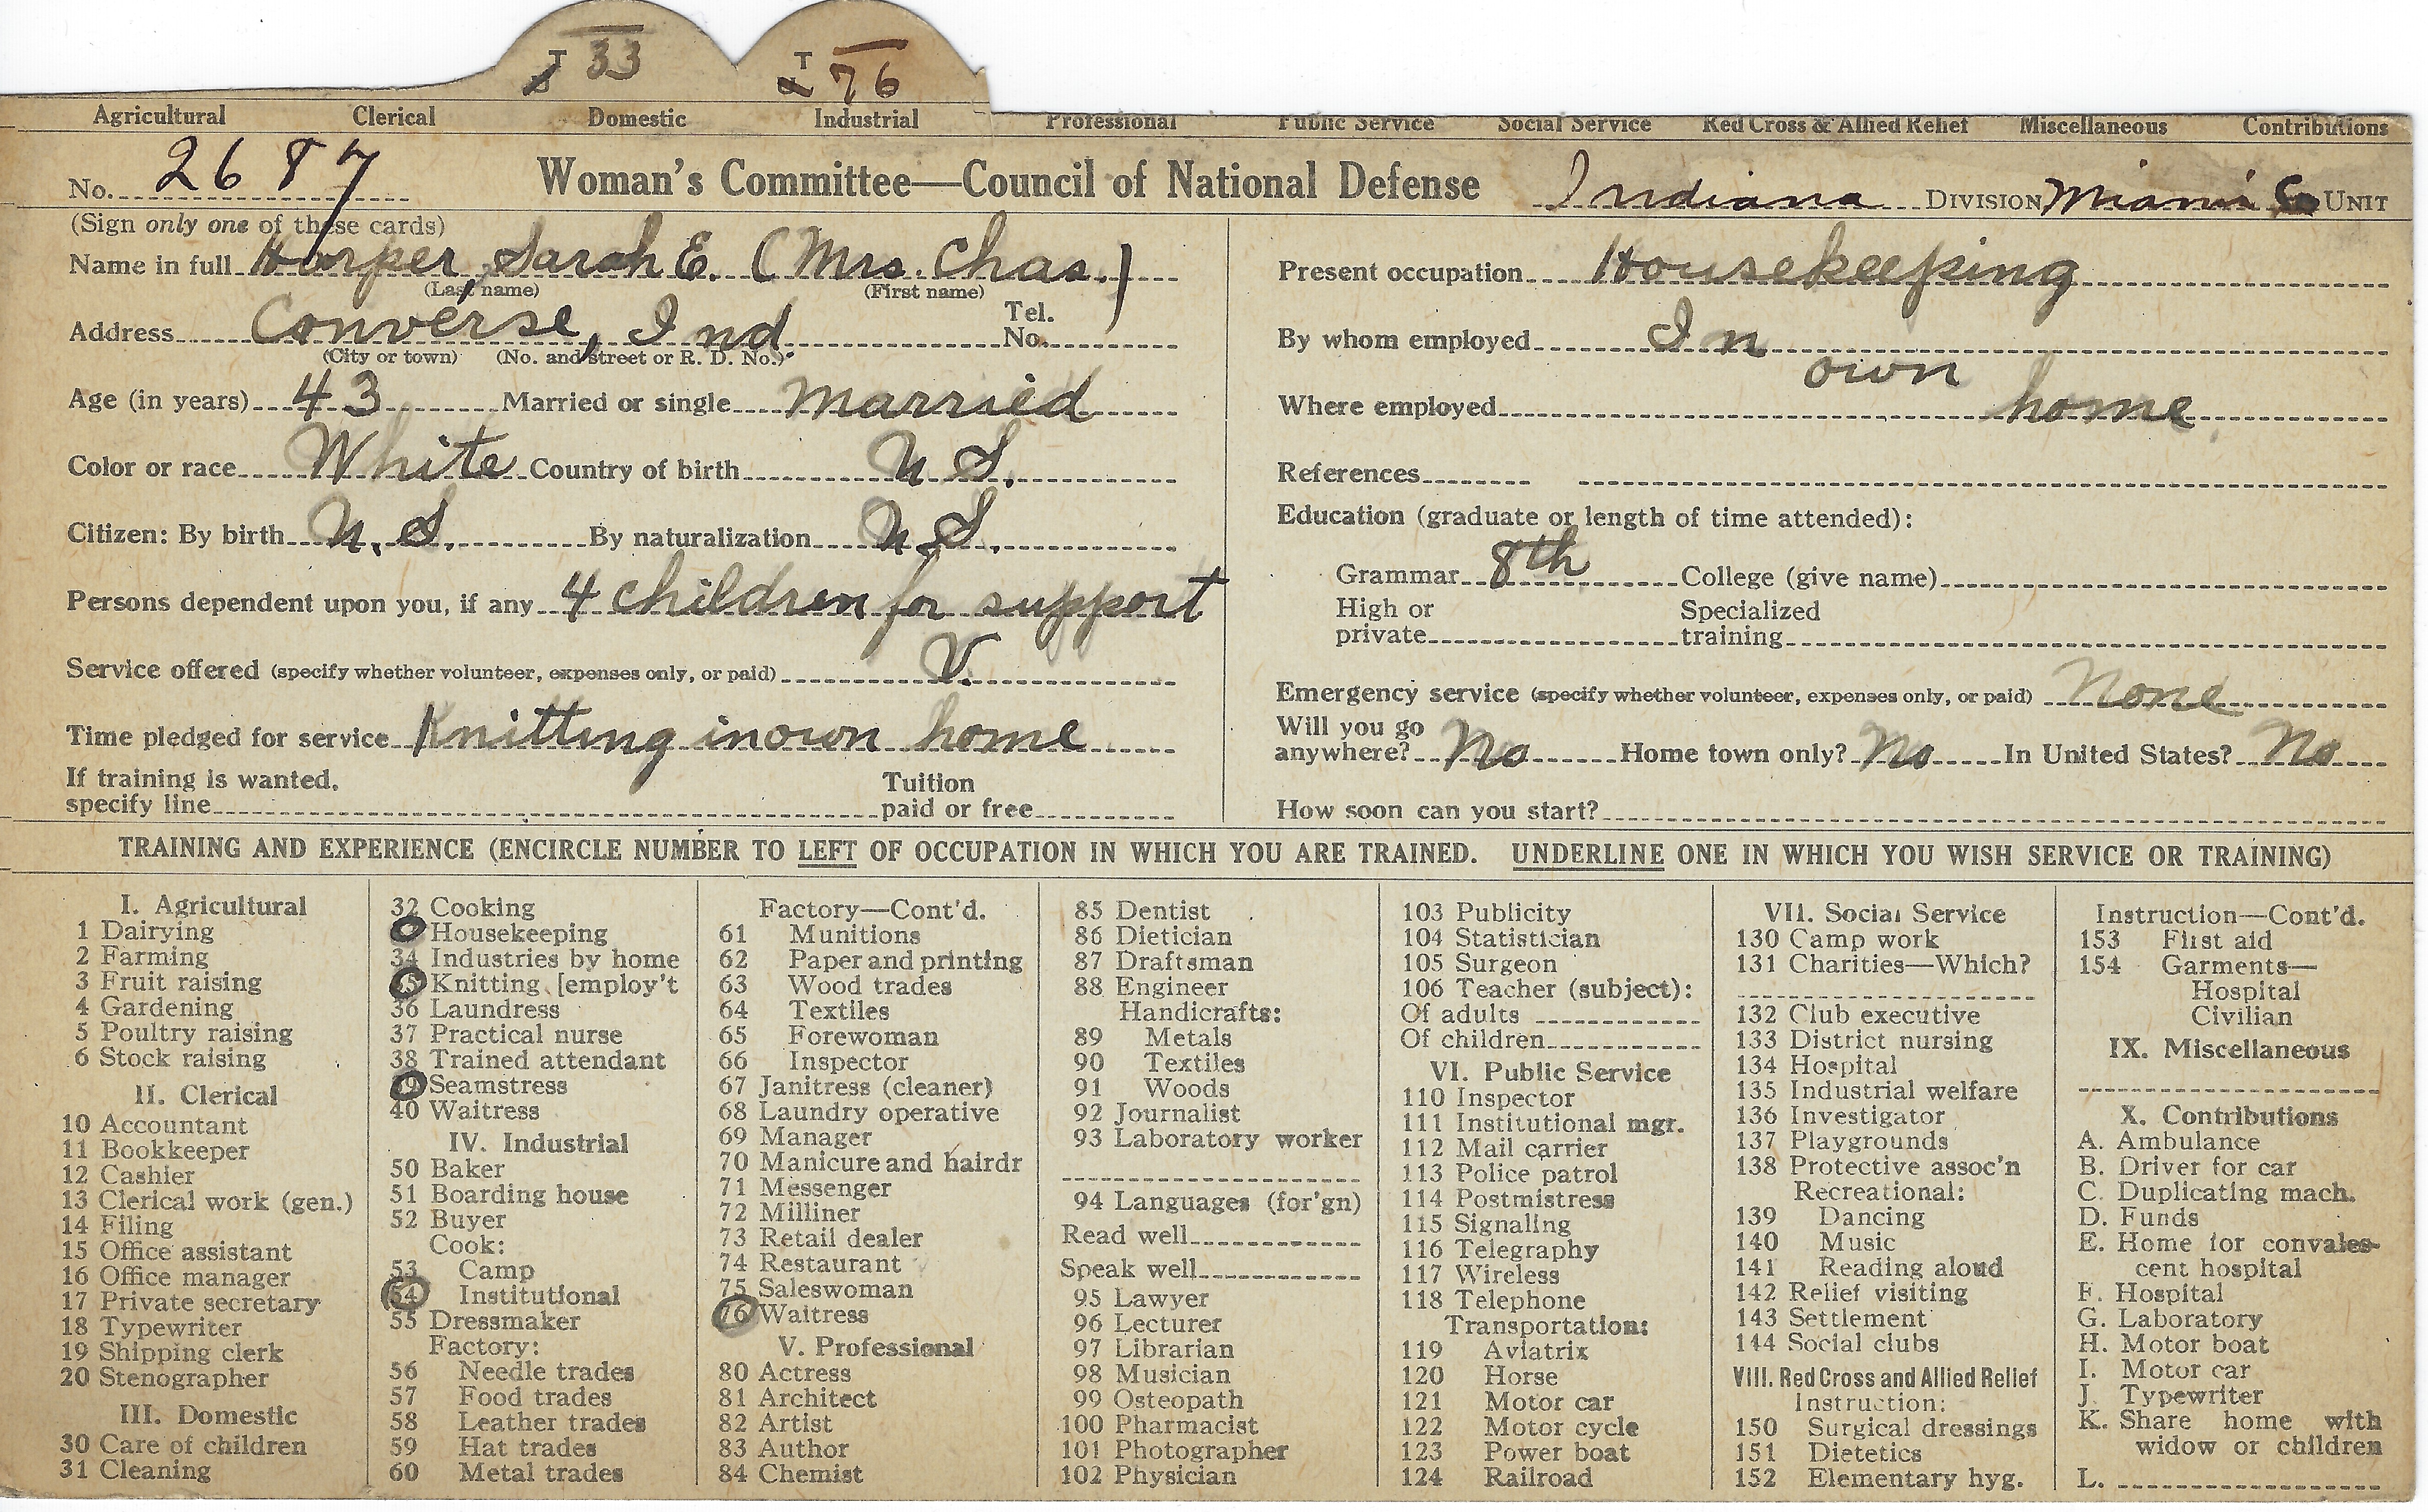 T 33 T 76
Agricultural Clerical Domestic Industrial Professional Public Service Social Service Red Cross & Allied Relief Miscellaneous Contributions
No. 2687 Woman's Committee—Council of National Defense Indiana DIVISION Miami Co UNIT
(Sign only one of these cards)
Name in full Harper, Sarah E. (Mrs. Chas.)
(Last name) (First name)
Address Converse, Ind Tel. No.
(City or town) (No. and street or R. D. No.)
Age (in years) 43 Married or single married
Color or race White Country of birth U S.
Citizen: By birth U. S. By naturalization U S.
Persons dependent upon you, if any 4 children for support
Service offered (specify whether volunteer, expenses only, or paid) V.
Time pledged for service Knitting in own home
If training is wanted, specify line Tuition paid or free
Present occupation Housekeeping
By whom employed In
own
Where employed home
References
Education (graduate or length of time attended):
Grammar 8th College (give name)
High or private Specialized training
Emergency service (specify whether volunteer, expenses only, or paid) None
Will you go anywhere? No Home town only? No In United States? No
How soon can you start?
TRAINING AND EXPERIENCE (ENCIRCLE NUMBER TO LEFT OF OCCUPATION IN WHICH YOU ARE TRAINED. UNDERLINE ONE IN WHICH YOU WISH SERVICE OR TRAINING)
I. Agricultural
1 Dairying
2 Farming
3 Fruit raising
4 Gardening
5 Poultry raising
6 Stock raising
II. Clerical
10 Accountant
11 Bookkeeper
12 Cashier
13 Clerical work (gen.)
14 Filing
15 Office assistant
16 Office manager
17 Private secretary
18 Typewriter
19 Shipping clerk
20 Stenographer
III. Domestic
30 Care of children
31 Cleaning
32 Cooking
Housekeeping
34 Industries by home
35 Knitting [employ't
36 Laundress
37 Practical nurse
38 Trained attendant
39 Seamstress
40 Waitress
IV. Industrial
50 Baker
51 Boarding house
52 Buyer
Cook:
53 Camp
54 Institutional
55 Dressmaker
Factory:
56 Needle trades
57 Food trades
58 Leather trades
59 Hat trades
60 Metal trades
Factory—Cont'd.
61 Munitions
62 Paper and printing
63 Wood trades
64 Textiles
65 Forewoman
66 Inspector
67 Janitress (cleaner)
68 Laundry operative
69 Manager
70 Manicure and hairdr
71 Messenger
72 Milliner
73 Retail dealer
74 Restaurant
75 Saleswoman
76 Waitress
V. Professional
80 Actress
81 Architect
82 Artist
83 Author
84 Chemist
85 Dentist
86 Dietician
87 Draftsman
88 Engineer
Handicrafts:
89 Metals
90 Textiles
91 Woods
92 Journalist
93 Laboratory worker
94 Languages (for'gn)
Read well
Speak well
95 Lawyer
96 Lecturer
97 Librarian
98 Musician
99 Osteopath
100 Pharmacist
101 Photographer
102 Physician
103 Publicity
104 Statistician
105 Surgeon
106 Teacher (subject):
Of adults
Of children
VI. Public Service
110 Inspector
111 Institutional mgr.
112 Mail carrier
113 Police patrol
114 Postmistress
115 Signaling
116 Telegraphy
117 Wireless
118 Telephone
Transportation:
119 Aviatrix
120 Horse
121 Motor car
122 Motor cycle
123 Power boat
124 Railroad
VII. Social Service
130 Camp work
131 Charities—Which?
132 Club executive
133 District nursing
134 Hospital
135 Industrial welfare
136 Investigator
137 Playgrounds
138 Protective assoc'n
Recreational:
139 Dancing
140 Music
141 Reading aloud
142 Relief visiting
143 Settlement
144 Social clubs
VIII. Red Cross and Allied Relief
Instruction:
150 Surgical dressings
151 Dietetics
152 Elementary hyg.
Instruction—Cont'd.
153 First aid
154 Garments—
Hospital
Civilian
IX. Miscellaneous
X. Contributions
A. Ambulance
B. Driver for car
C. Duplicating mach.
D. Funds
E. Home for convales-
cent hospital
F. Hospital
G. Laboratory
H. Motor boat
I. Motor car
J. Typewriter
K. Share home with
widow or children
L.